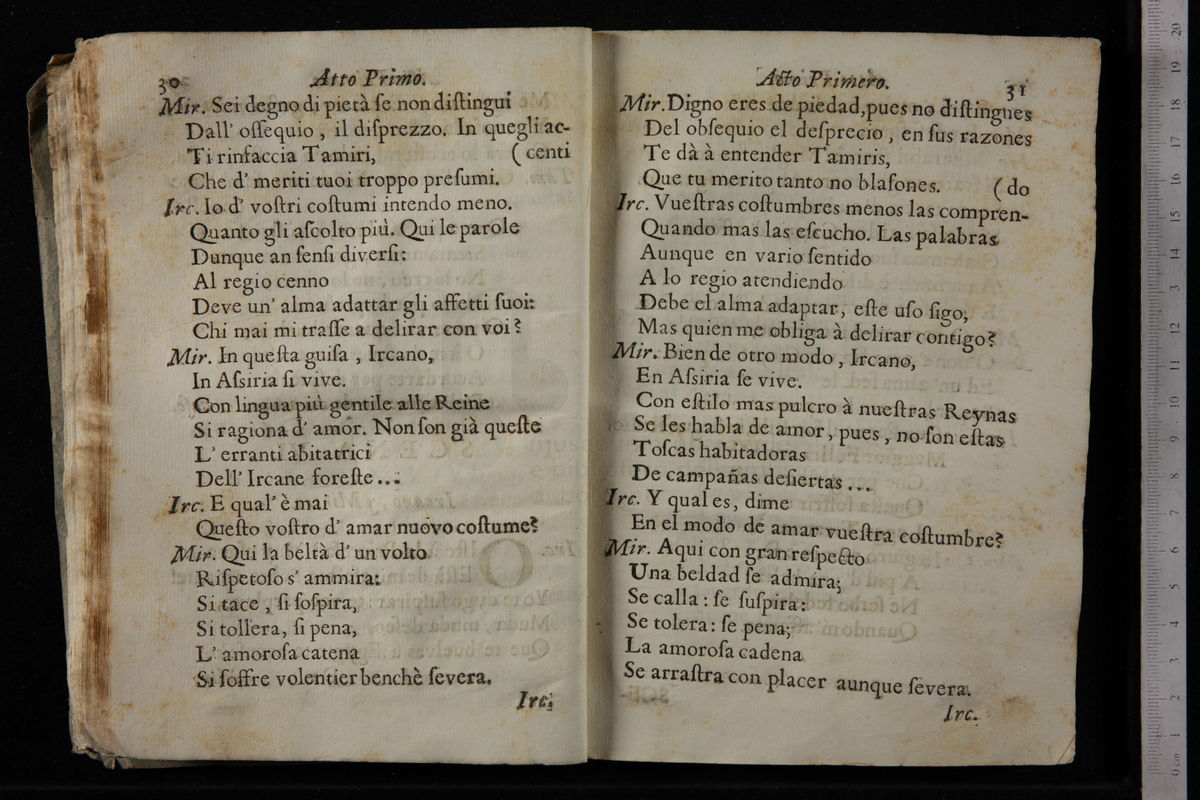 30
Atto Primo.
Mir. Sei degno di pietà ſe non diſtingui
Dall' oſſequio , il diſprezzo. In quegli ac-
Ti rinfaccia Tamiri, ( centi
Che d' meriti tuoi troppo preſumi.
Irc. Io d' voſtri coſtumi intendo meno.
Quanto gli aſcolto più. Qui le parole
Dunque an ſenſi diverſi:
Al regio cenno
Deve un' alma adattar gli affetti ſuoi:
Chi mai mi traſſe a delirar con voi?
Mir. In queſta guiſa , Ircano,
In Aſsiria ſi vive.
Con lingua più gentile alle Reine
Si ragiona d' amor. Non ſon già queſte
L' erranti abitatrici
Dell' Ircane foreſte...
Irc. E qual' è mai
Queſto voſtro d' amar nuovo coſtume?
Mir. Qui la beltà d' un volto
Riſpetoſo s' ammira:
Si tace , ſi ſoſpira,
Si tollera, ſi pena,
L' amoroſa catena
Si ſoffre volentier benchè ſevera.
Irc.
Acto Primero.
31
Mir. Digno eres de piedad, pues no diſtingues
Del obſequio el deſprecio , en ſus razones
Te dà à entender Tamiris,
Que tu merito tanto no blaſones. ( do
Irc. Vueſtras coſtumbres menos las compren-
Quando mas las eſcucho. Las palabras
Aunque en vario ſentido
A lo regio atendiendo
Debe el alma adaptar, eſte uſo ſigo,
Mas quien me obliga à delirar contigo?
Mir. Bien de otro modo , Ircano,
En Aſsiria ſe vive.
Con eſtilo mas pulcro à nueſtras Reynas
Se les habla de amor, pues , no ſon eſtas
Toſcas habitadoras
De campañas deſiertas ...
Irc. Y qual es, dime
En el modo de amar vueſtra coſtumbre?
Mir. Aqui con gran reſpecto
Una beldad ſe admira;
Se calla : ſe ſuſpira:
Se tolera: ſe pena;
La amoroſa cadena
Se arraſtra con placer aunque ſevera.
Irc.